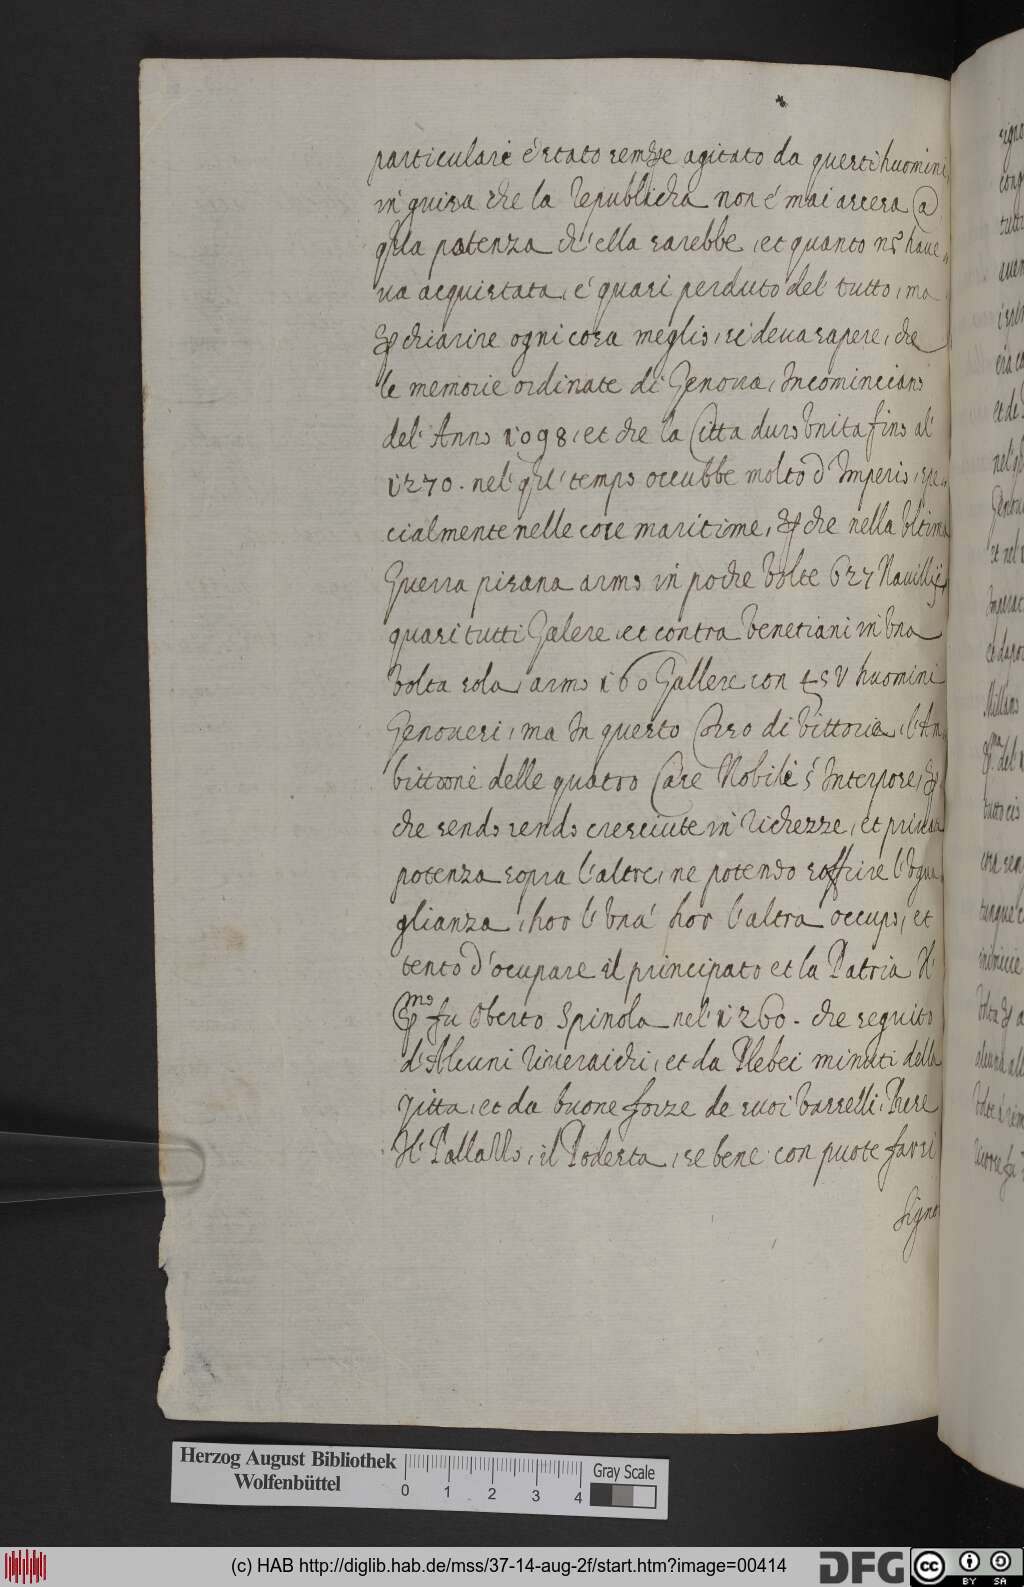 particulari é stato sempre agitato da questi huomini,
in guisa che la Republicha non é mai ascesa a
qlla potenza ch'ella sarebbe, et quanto ns haue
ua acquistata, é quasi perduto del tutto, ma
p chiarire ogni cosa meglio, si deua sapere, che
le memorie ordinate di Genova, Incominciano
del' Anno 1098, et che la Citta duro Vnita fino al'
1270. nel' ql' tempo occubbe molto d' Imperio, spe
cialmente nelle cose maritime, p che nella Vltima
Guerra pisana armo in poche Volte 627 Nauillij
quasi tutti Galere, et contra Venetiani in Vna
Volta sola, armo 160 Gallere con huomini
Genouesi, ma In questo Corso di Vittorie, l'Am
bittione delle quatro Case Nobili s' Interpose, p
che sendo sendo cresciute in Richezze, et priuata
potenza sopra l'altre, ne potendo soffrire l'Vgua
glianza, hor l' Vna' hor l'altra occupo, et
tento d'ocupare il principato et la Patria Il'
pmo fu Oberto Spinola nel' 1260. che seguito
d'Alcuni Riueraschi, et da Plebei minuti della
Citta, et da buone forze de suoi Vasselli, Prese
Il' Pallazzo, il Podesta, se bene con puote farsi
Signo
Herzog August Bibliothek
Wolfenbüttel
0 1 2 3 4
Gray Scale
(c) HAB http://diglib.hab.de/mss/37-14-aug-2f/start.htm?image=00414
DFG
cc BY SA